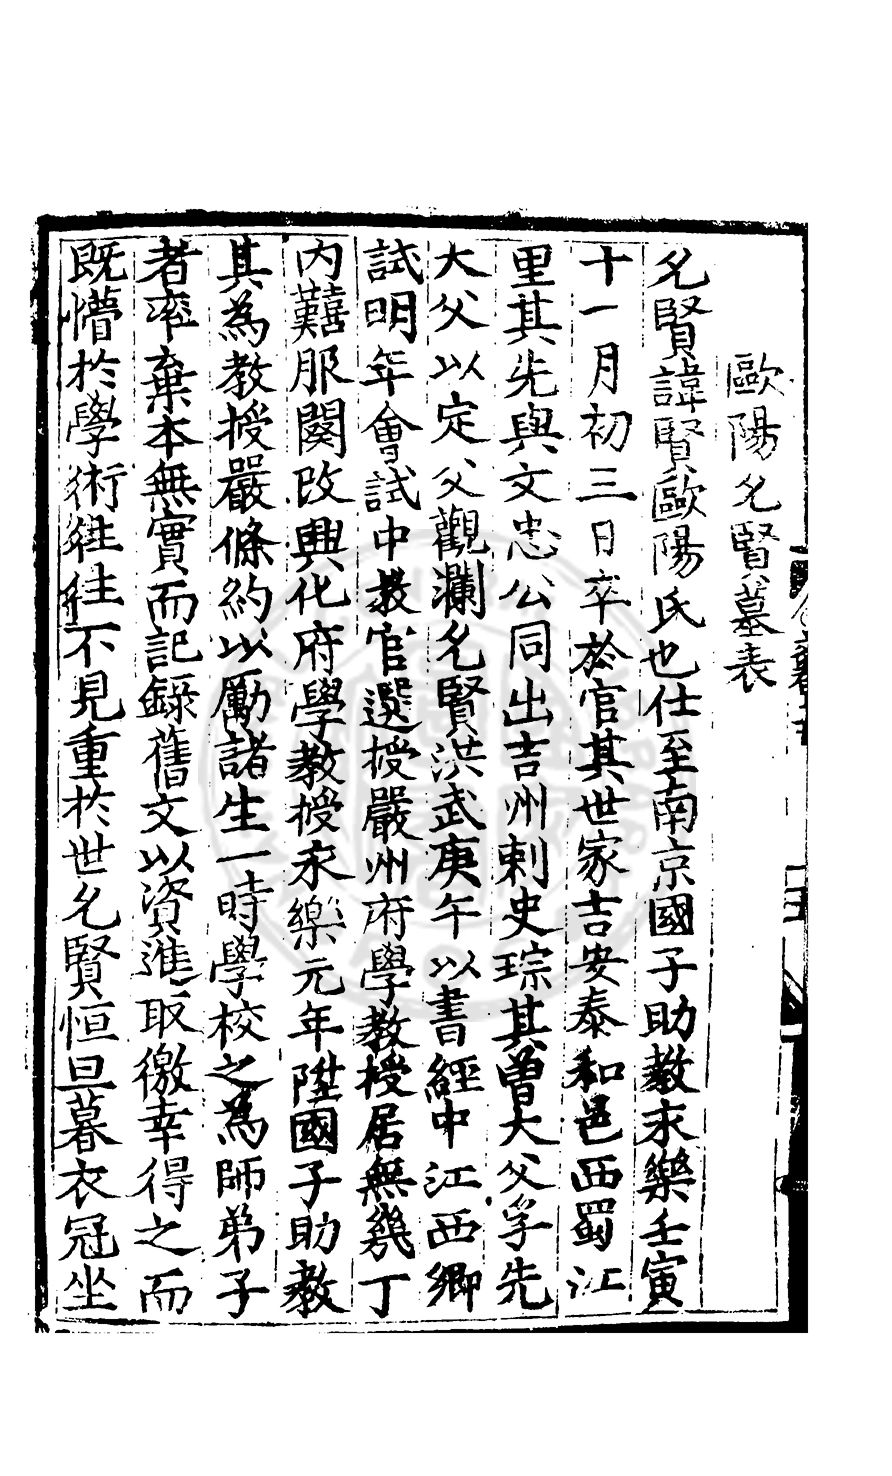 歐陽允賢墓表
允賢諱賢歐陽氏也仕至南京國子助教永樂壬寅
十一月初三日卒於官其世家吉安泰和邑西蜀江
里其先與文忠公同出吉州刺史琮其曾大父孚先
大父以定父觀瀾允賢洪武庚午以書經中江西鄉
試明年會試中教官選授嚴州府學教授居無幾丁
內囏服闋改興化府學教授永樂元年陞國子助教
其為教授嚴條約以勵諸生一時學校之為師弟子
者率棄本無實而記錄舊文以資進取徼幸得之而
既懵於學術往往不見重於世允賢恒旦暮衣冠坐